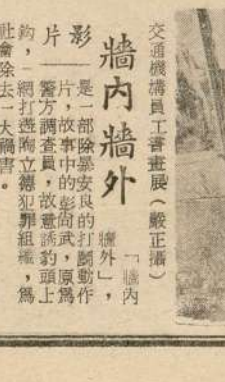 交通機構員工書畫展(嚴正攝)
牆內牆外
影片
「牆內
牆外」,
是一部除暴安良的打鬪動作
片,故事中的彭尚武,原為
警方調查員,故意誘豹頭上
鈎,一網打盡陶立德犯罪組織,為
社會除去一大禍害。